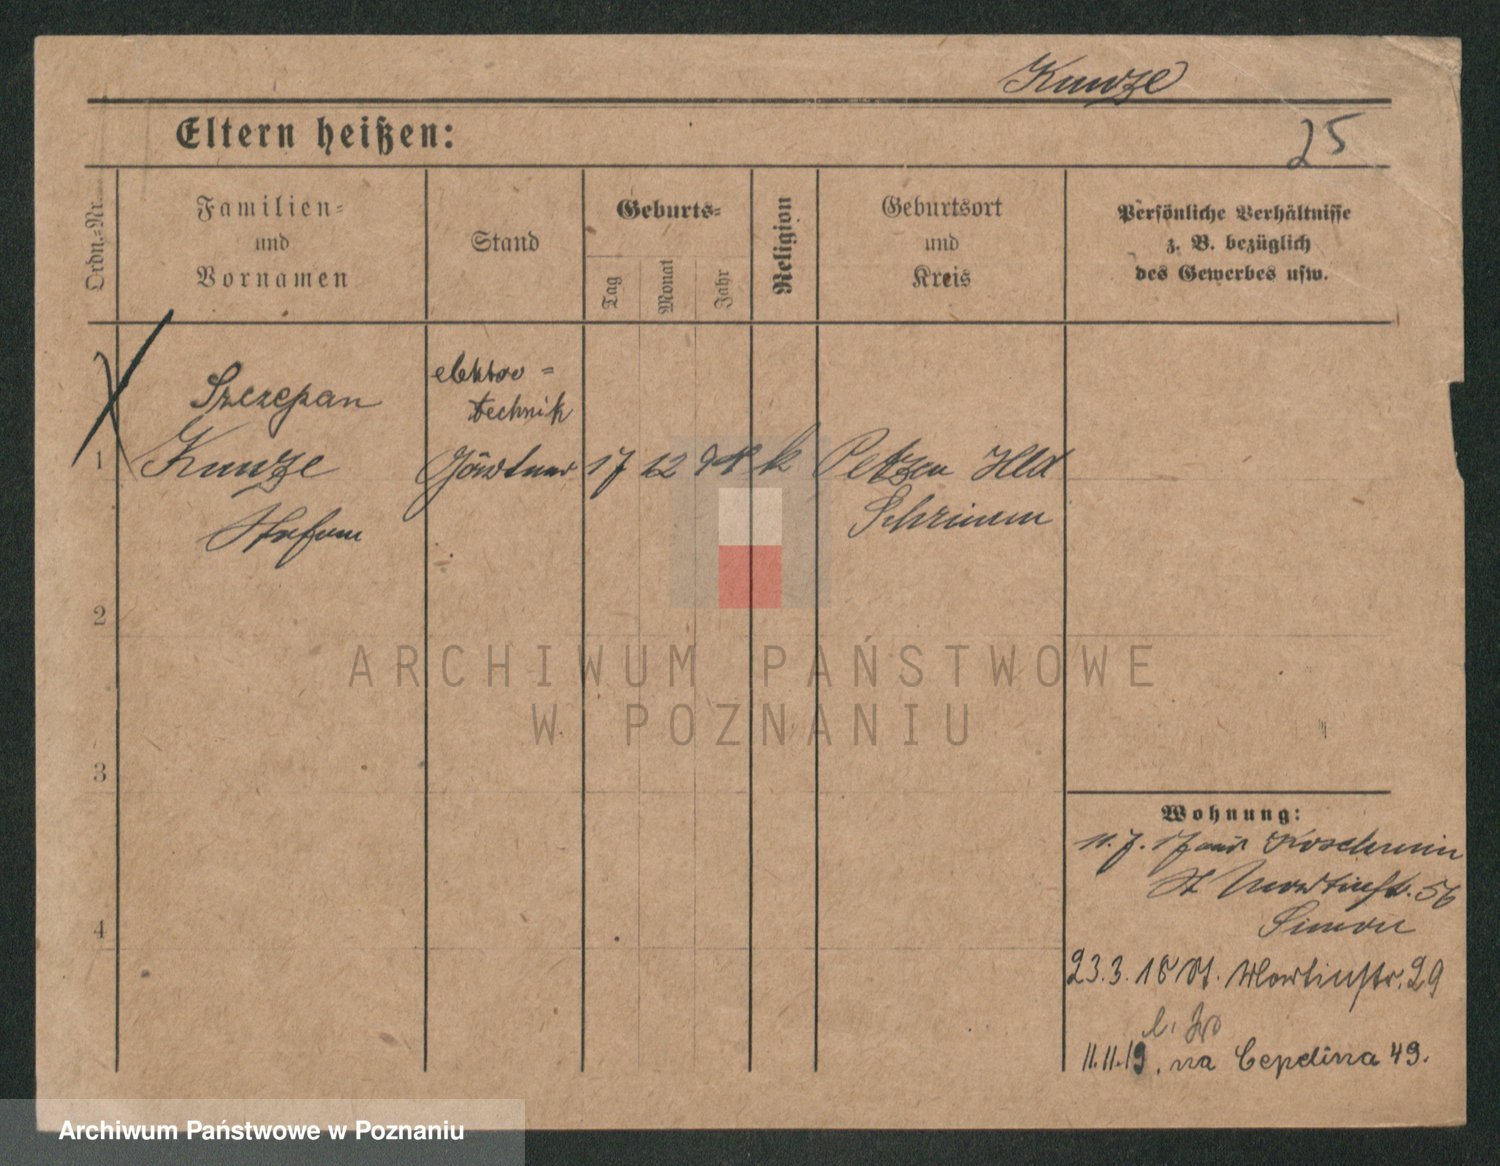 Kunze
25
Eltern heißen:
Ordn.-Nr.
Familien-
und
Vornamen
Stand
Geburts-
Tag
Monat
Jahr
Religion
Geburtsort
und
Kreis
Persönliche Verhältnisse
z. B. bezüglich
des Gewerbes usw.
Szczepan
elektro-
technik
1
Kunze
Gärtner
17
12
k
Petzen Hld
Stefan
Schrimm
2
3
4
ARCHIWUM PAŃSTWOWE
W POZNANIU
Wohnung:
11. 7. 17 aus Koschmin
St Martinstr. 56
Simon
23.3.18 St. Martinstr. 29
11.11.19. na Cepelina 49.
Archiwum Państwowe w Poznaniu